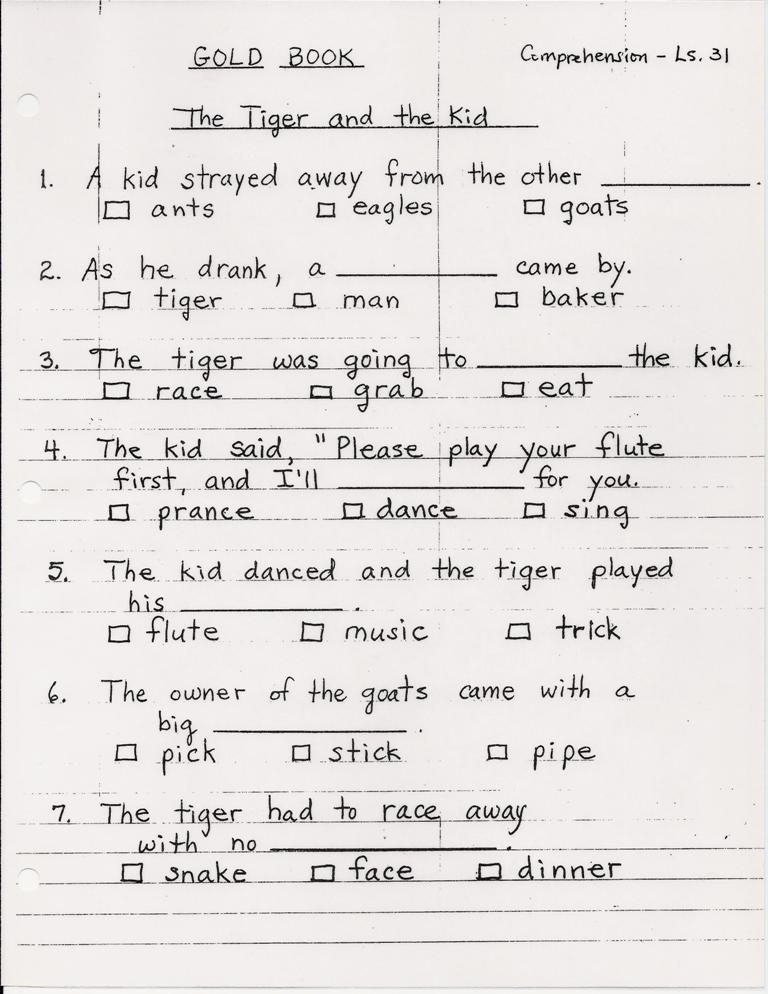 GOLD BOOK
Comprehension - Ls. 31
The Tiger and the Kid
1. A kid strayed away from the other __________.
☐ ants ☐ eagles ☐ goats
2. As he drank, a __________ came by.
☐ tiger ☐ man ☐ baker
3. The tiger was going to __________ the kid.
☐ race ☐ grab ☐ eat
4. The kid said, "Please play your flute
first, and I'll __________ for you.
☐ prance ☐ dance ☐ sing
5. The kid danced and the tiger played
his __________.
☐ flute ☐ music ☐ trick
6. The owner of the goats came with a
big __________.
☐ pick ☐ stick ☐ pipe
7. The tiger had to race away
with no __________.
☐ snake ☐ face ☐ dinner